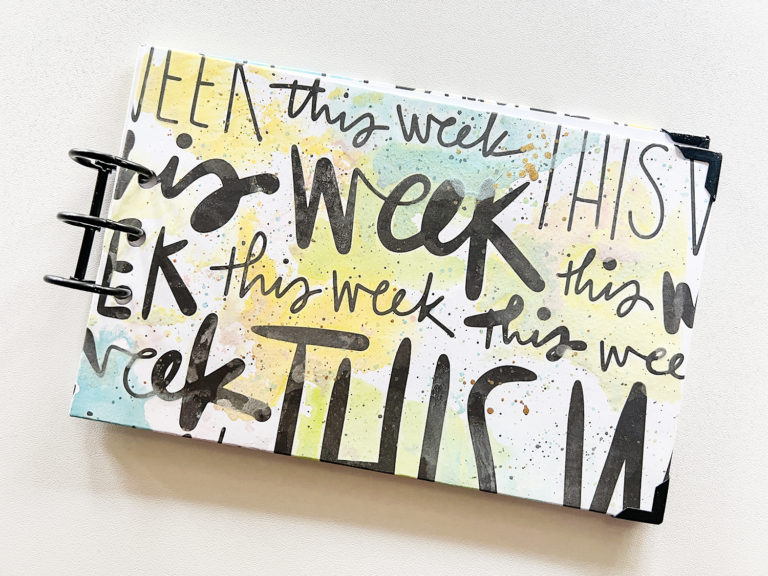 WEEK this week THIS W
this week
EEK this week this w
week THIS W this wee